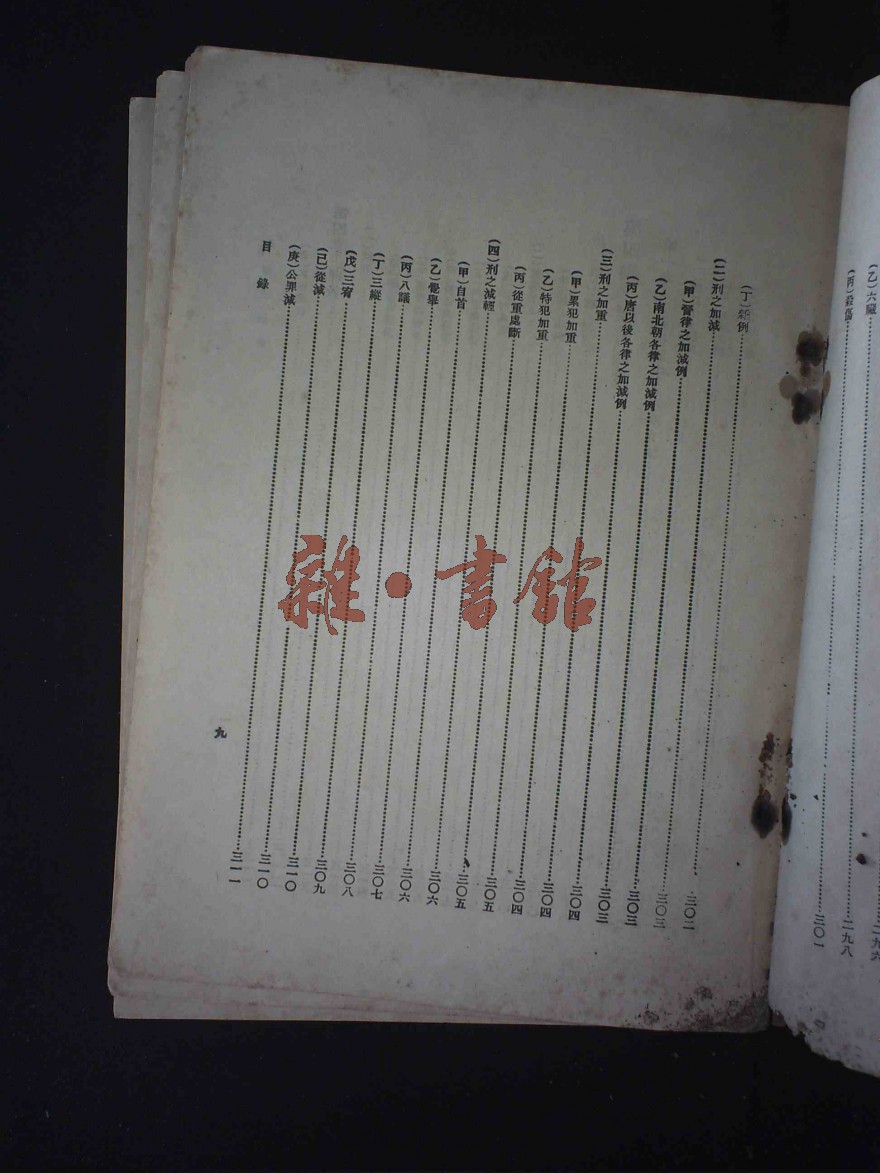 二九六
(乙)六贓⋯⋯二九八
(丙)殺傷⋯⋯三〇一
(丁)類例⋯⋯三〇二
(二)刑之加減⋯⋯三〇三
(甲)晉律之加減例⋯⋯三〇三
(乙)南北朝各律之加減例⋯⋯三〇三
(丙)唐以後各律之加減例⋯⋯三〇四
(三)刑之加重⋯⋯三〇四
(甲)累犯加重⋯⋯三〇四
(乙)特犯加重⋯⋯三〇五
(丙)從重處斷⋯⋯三〇五
(四)刑之減輕⋯⋯三〇六
(甲)自首⋯⋯三〇六
(乙)覺舉⋯⋯三〇七
(丙)八議⋯⋯三〇八
(丁)三縱⋯⋯三〇九
(戊)三宥⋯⋯三一〇
(己)從減⋯⋯三一〇
(庚)公罪減⋯⋯三一一
目錄
九
雜·書館